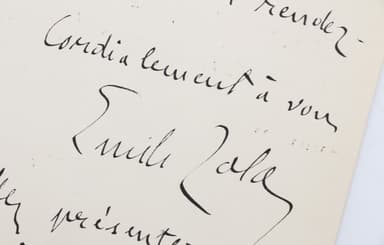 rendez-
Cordialement à vous
Emile Zola
présenter